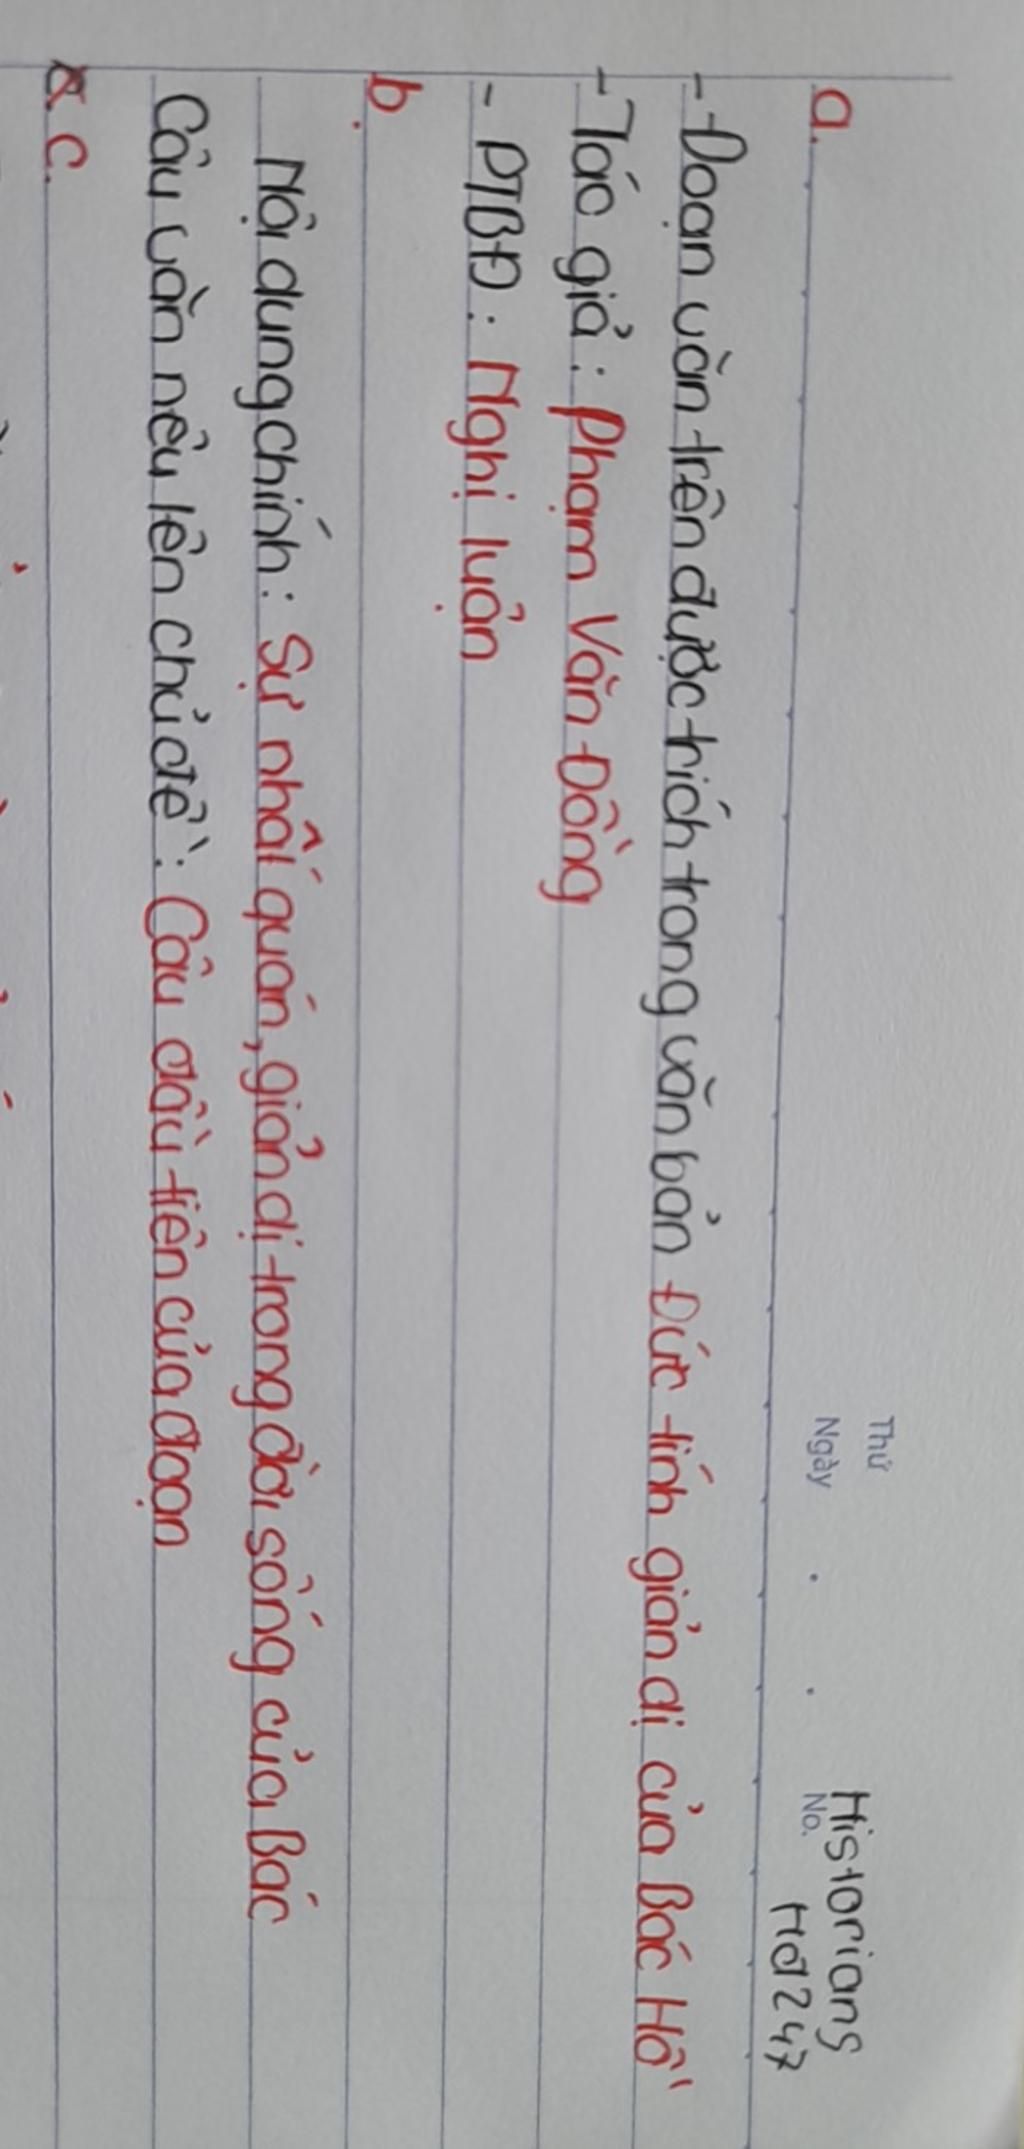 Thứ
Ngày
No.
Historians
Hd247
a.
- Đoạn văn trên được trích trong văn bản Đức tính giản dị của Bác Hồ
- Tác giả: Phạm Văn Đồng
- PTBĐ: Nghị luận
b.
Nội dung chính: Sự nhất quán, giản dị trong đời sống của Bác
Câu văn nêu lên chủ đề: Câu đầu tiên của đoạn
c.